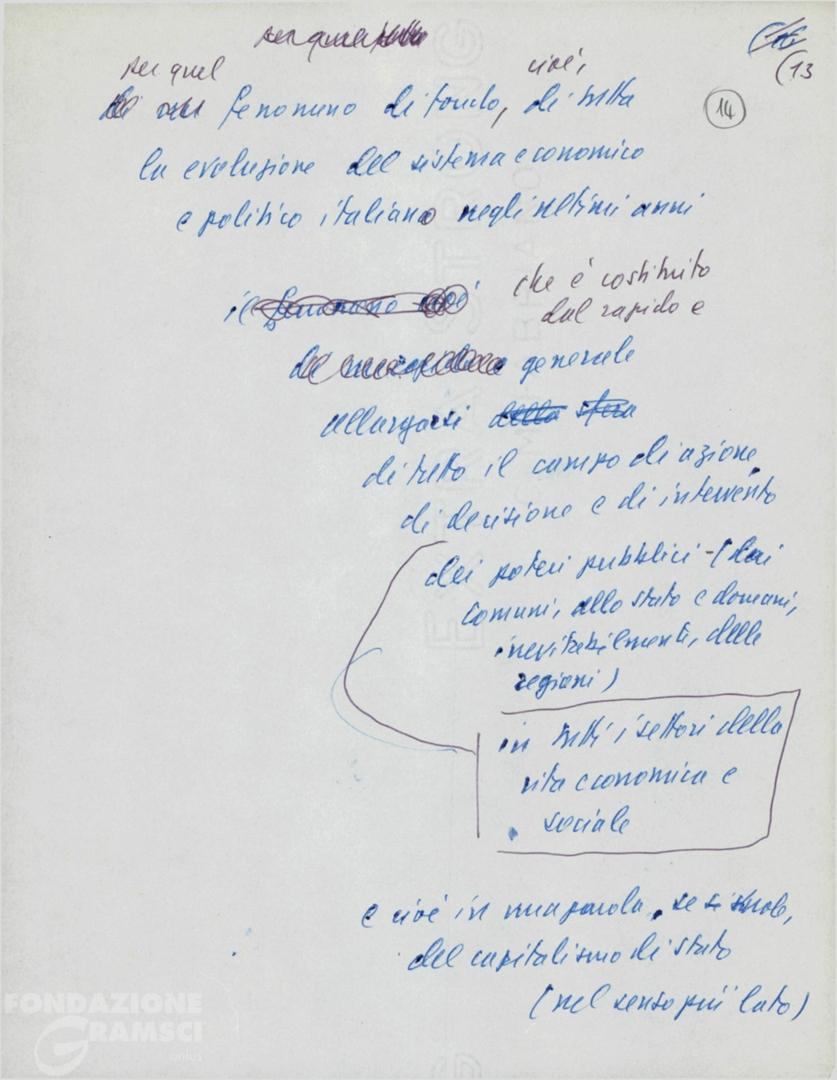 per quel
cioè,
(13
14
fenomeno di fondo, di tutta
la evoluzione del sistema economico
e politico italiano negli ultimi anni
che è costituito
dal rapido e
il
generale
allargarsi della sfera
di tutto il campo di azione,
di decisione e di intervento
dei poteri pubblici - (dai
comuni, allo stato e domani,
inevitabilmente, delle
regioni)
in tutti i settori della
vita economica e
sociale
e cioè in una parola, se si vuole,
del capitalismo di stato
(nel senso più lato)
FONDAZIONE
GRAMSCI
onlus